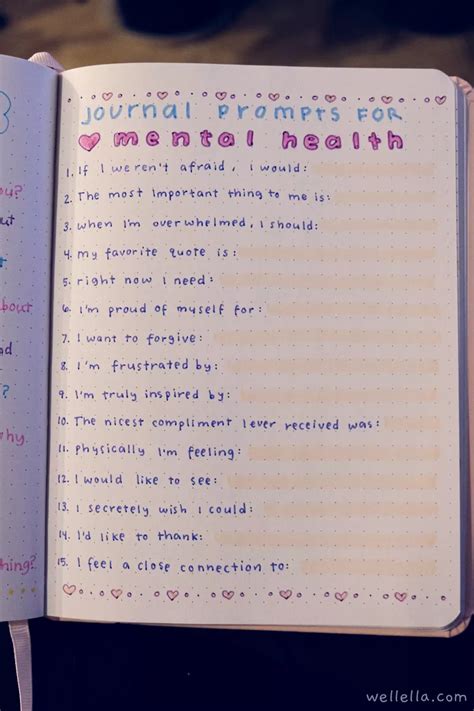 journal prompts for
mental health
1. If I weren't afraid, i would:
2. The most important thing to me is:
3. when I'm overwhelmed, I should:
4. my favorite quote is:
5. right now I need:
6. I'm proud of myself for:
7. I want to forgive:
8. I'm frustrated by:
9. I'm truly inspired by:
10. The nicest compliment I ever received was:
11. physically I'm feeling:
12. I would like to see:
13. I secretely wish I could:
14. I'd like to thank:
15. I feel a close connection to:
wellella.com